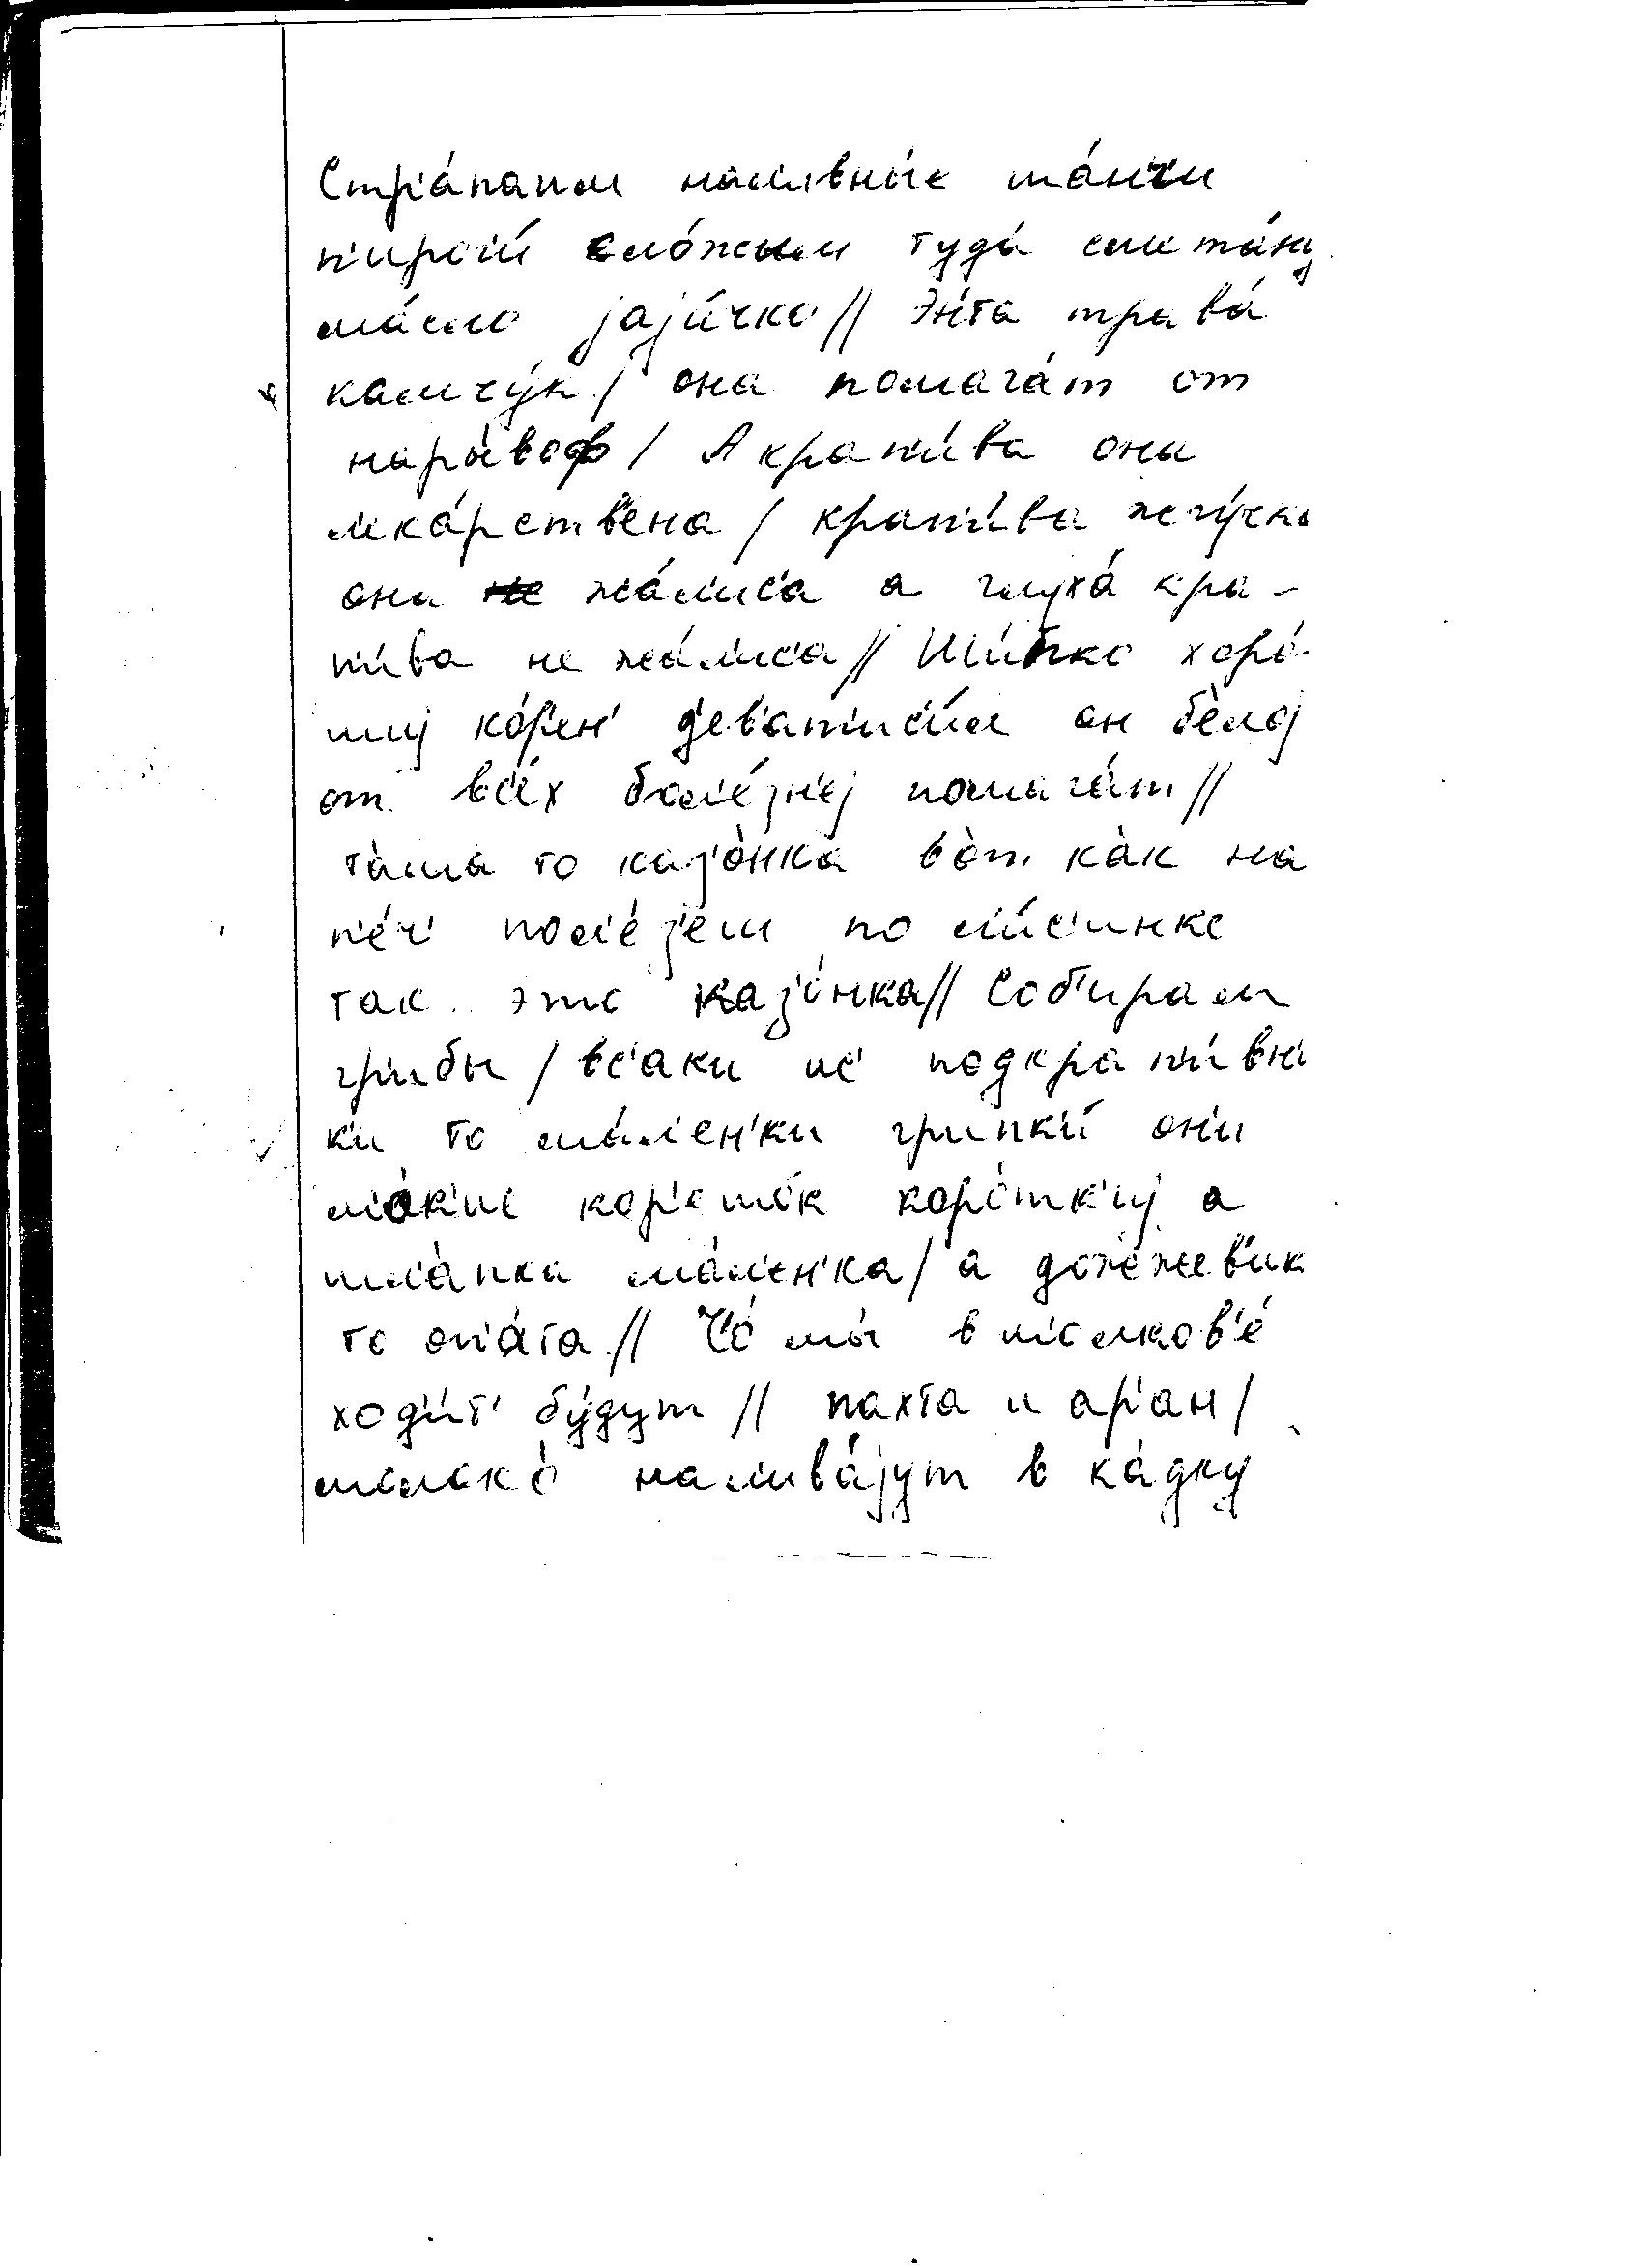 Стр'а́папам нал'ивны́е ша́н'г'и
п'ирог'и́ сло́жым туда́ см'ета́ну
ма́сло jajи́чко // Э́нта трава́
камчу́к / она помага́т от
нары́воф / А крап'и́ва она
л'ека́рств'ена / крап'и́ва жгу́чка
она жа́л'иса а глуха́ кра-
п'и́ва не жа́л'иса // Шы́пко хоро́-
шыj ко́р'ен' д'ев'ат'иси́л он б'е́лоj
от вс'е́х бол'е́зн'еj помага́т //
та́ма то каз'о́нка во́т как на
п'е́ч' пол'е́з'еш по л'е́с'инке
так это каз'о́нка // Соб'ирам
грибы / вс'аки ис' подкрап'и́вн'и
к'и то ма́л'ен'ки грипки́ он'и
м'а́к'ие кор'ешо́к коро́тк'иj а
шл'а́пка ма́л'ен'ка / а дож'жев'ик
то оп'а́та // Ч'о́ мы́ в шолков'е́
ход'и́т' бу́дут // пахта и ар'ан /
молоко́ нал'ива́jут в ка́дку